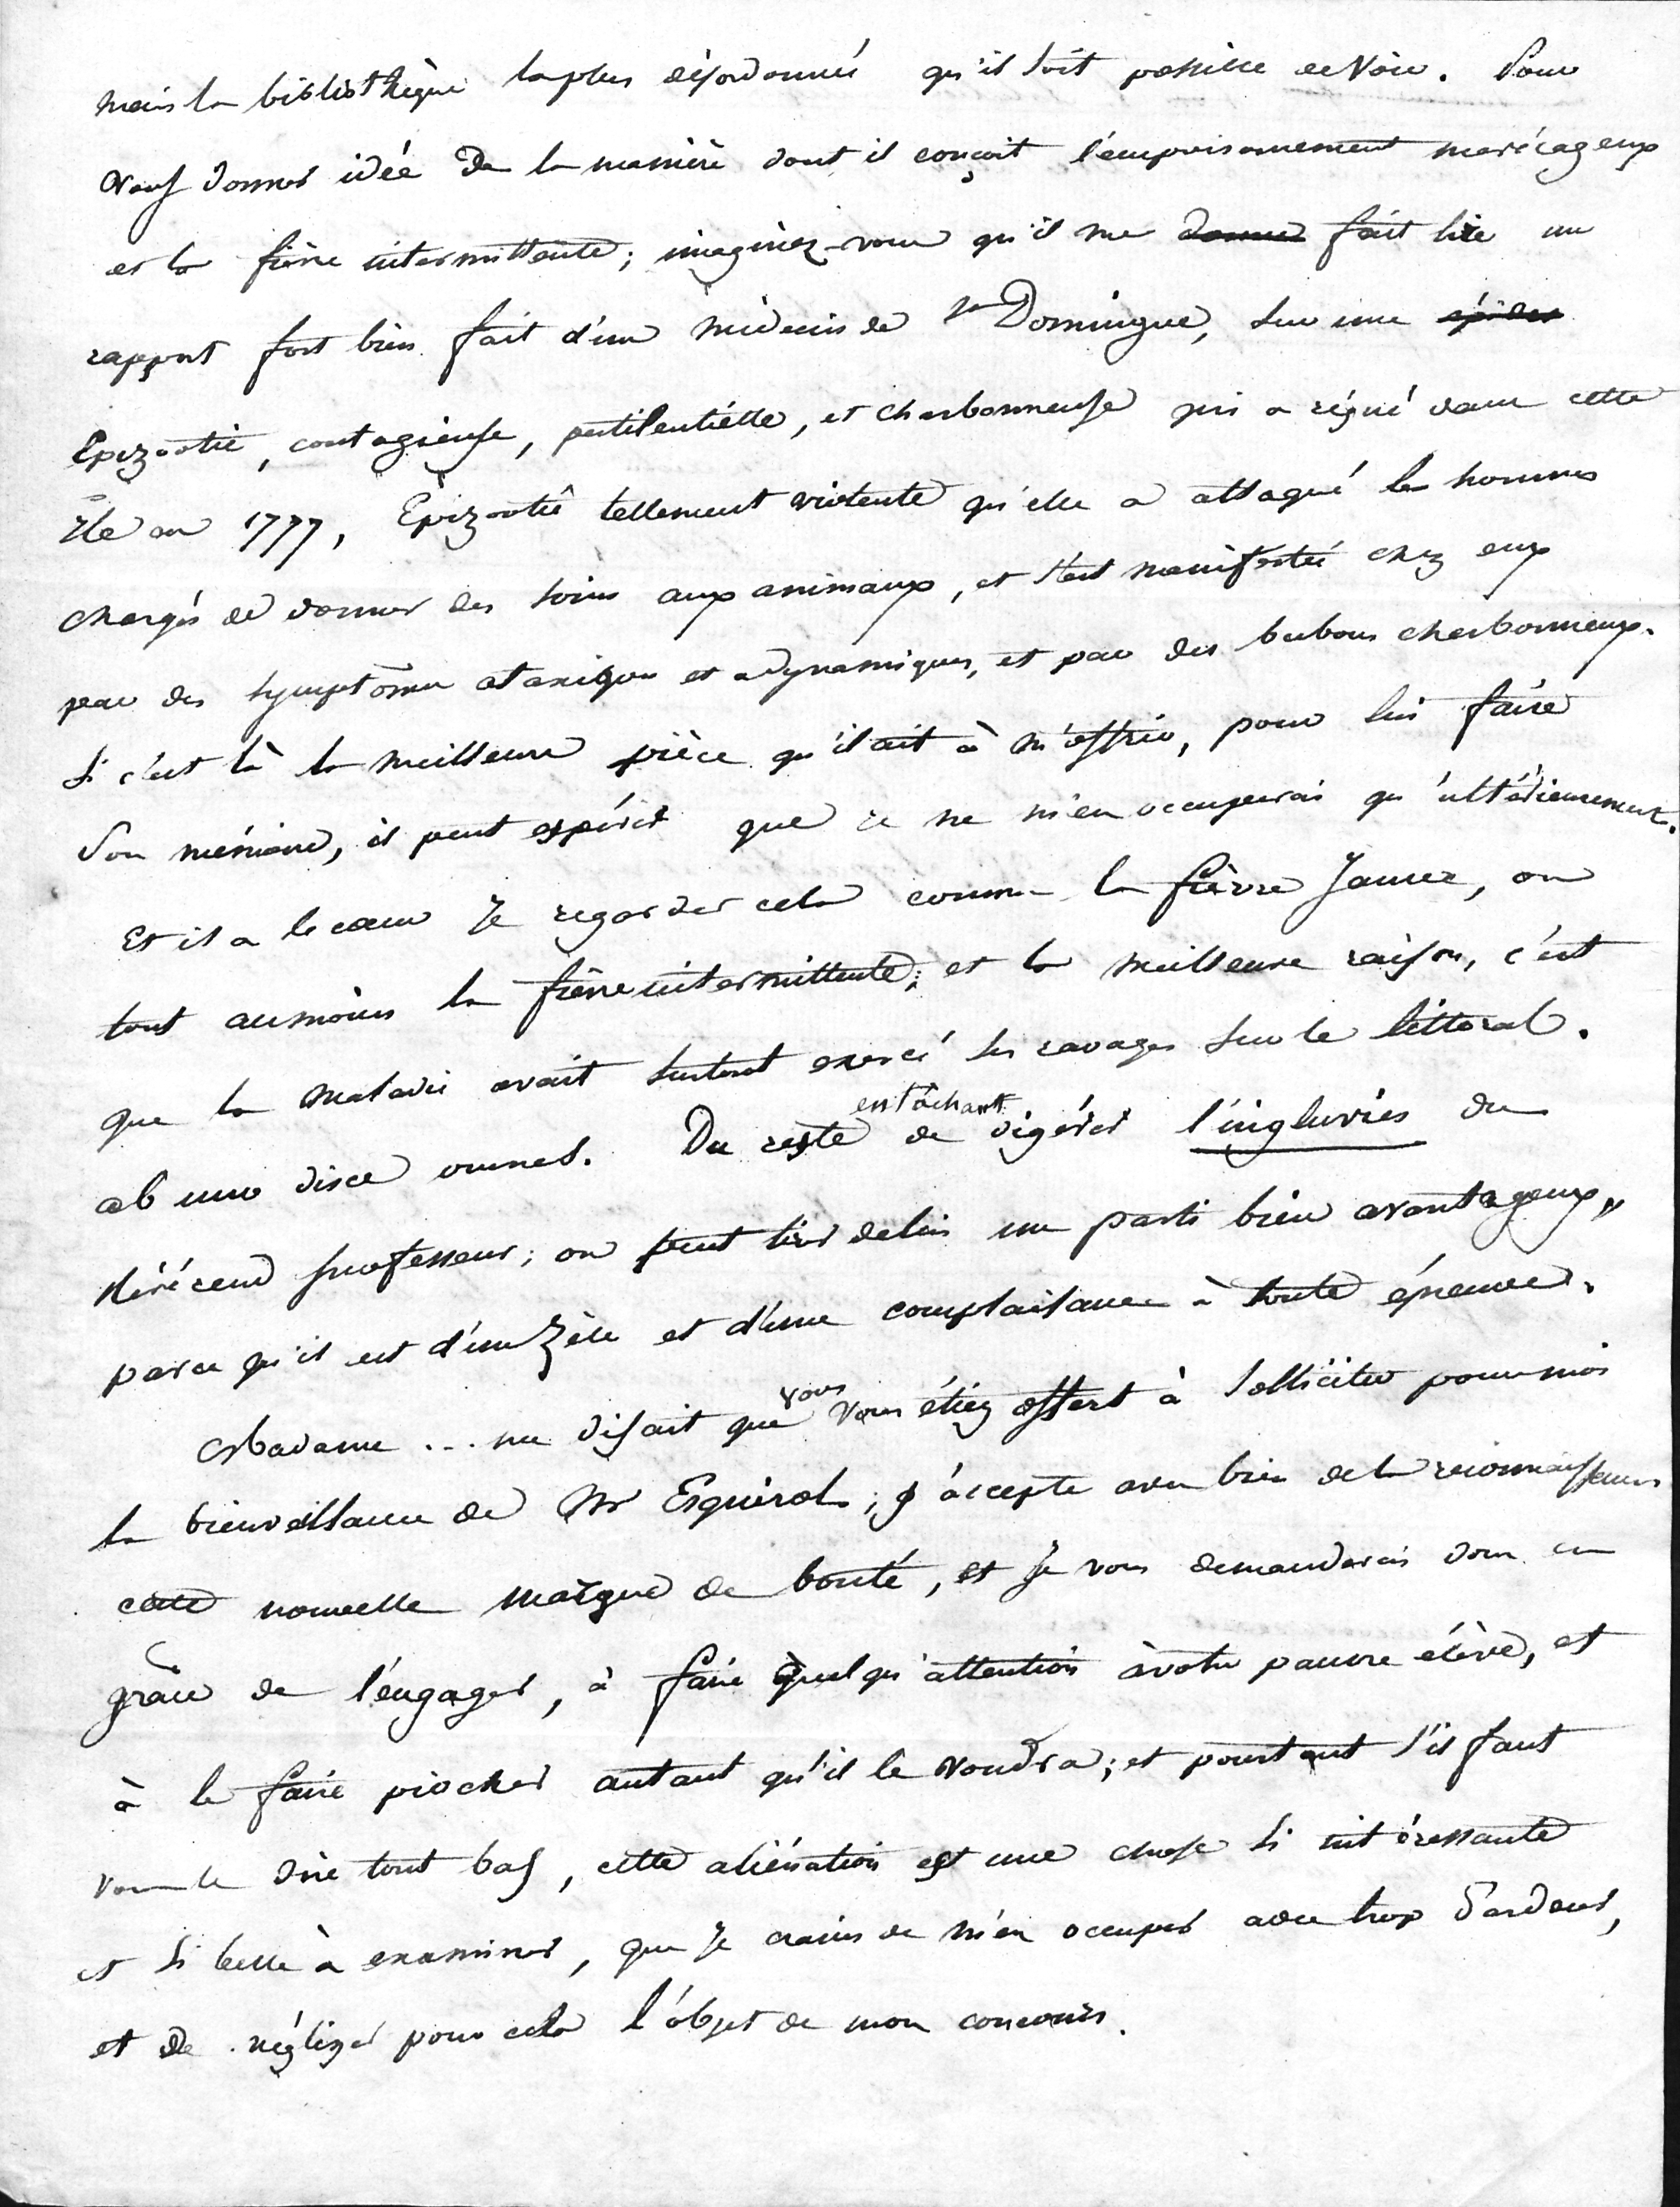 mais la bibliothèque la plus désordonnée qu'il soit possible de voir. Pour
vous donner idée de la manière dont il conçoit l'empoisonnement marécageux
et la fièvre intermittente; imaginez-vous qu'il me donne fait lire un
rapport fort bien fait d'un médecin de St Domingue, sur une épidem
Epizootie, contagieuse, pestilentielle, et charbonneuse qui a régné dans cette
île en 1777, Epizootie tellement violente qu'elle a attaqué les hommes
chargés de donner des soins aux animaux, et s'est manifestée chez eux
par des symptômes ataxiques et adynamiques, et par des bubons charbonneux.
Si c'est là la meilleure pièce qu'il ait à m'offrir, pour lui faire
son mémoire, il peut espérer que je ne m'en occuperai qu'ultérieurement.
Et il a le cœur de regarder cela comme la fièvre Jaune, ou
tout aumoins la fièvre intermittente; et la meilleure raison, c'est
que la maladie avait surtout exercé ses ravages sur le littoral.
ab uno disce omnes. Du reste en tâchant de digérer l'ingluvies du
Révérend professeur; on peut tirer de lui un parti bien avantageux,
parce qu'il est d'un zèle et d'une complaisance à toute épreuve.
Madame ... me disait que vous vous étiez offert à solliciter pour moi
la bienveillance de Mr Esquirol; j'accepte avec bien de la reconnaissance
cette nouvelle marque de bonté, et je vous demanderais donc en
grâce de l'engager, à faire quelqu'attention à votre pauvre élève, et
à le faire piocher autant qu'il le voudra; et pourtant s'il faut
vous le dire tout bas, cette aliénation est une chose si intéressante
et si belle à examiner, que je crains de m'en occuper avec trop d'ardeur,
et de négliger pour cela l'objet de mon concours.